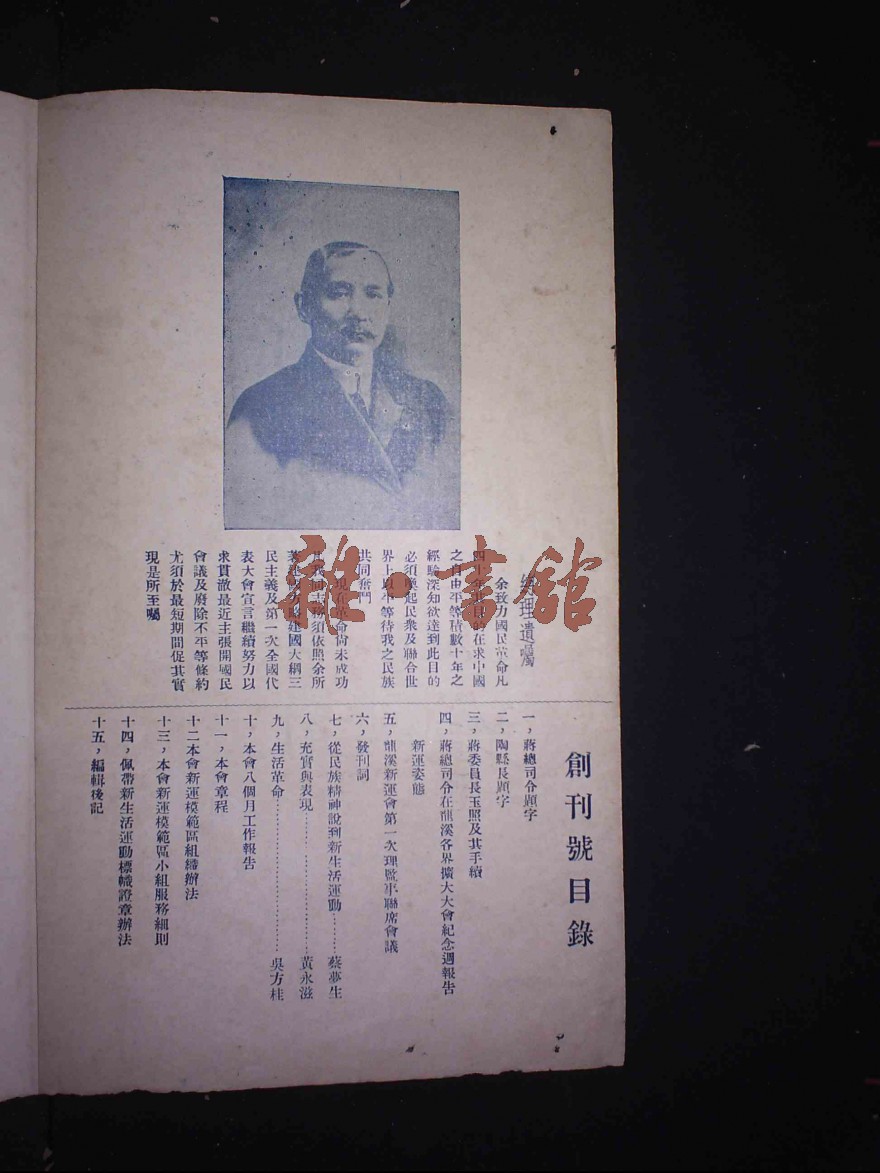 總理遺囑
余致力國民革命凡
四十年其目的在求中國
之自由平等積數十年之
經驗深知欲達到此目的
必須喚起民衆及聯合世
界上以平等待我之民族
共同奮鬥
現在革命尚未成功
凡我同志務須依照余所
著建國方略建國大綱三
民主義及第一次全國代
表大會宣言繼續努力以
求貫澈最近主張開國民
會議及廢除不平等條約
尤須於最短期間促其實
現是所至囑
創刊號目錄
一，蔣總司令題字
二，陶縣長題字
三，蔣委員長玉照及其手續
四，蔣總司令在龍溪各界擴大大會紀念週報告
新運姿態
五，龍溪新運會第一次理監事聯席會議
六，發刊詞
七，從民族精神說到新生活運動………蔡夢生
八，充實與表現………黃永滋
九，生活革命………吳方桂
十，本會八個月工作報告
十一，本會章程
十二本會新運模範區組織辦法
十三，本會新運模範區小組服務細則
十四，佩帶新生活運動標幟證章辦法
十五，編輯後記
雅·書館